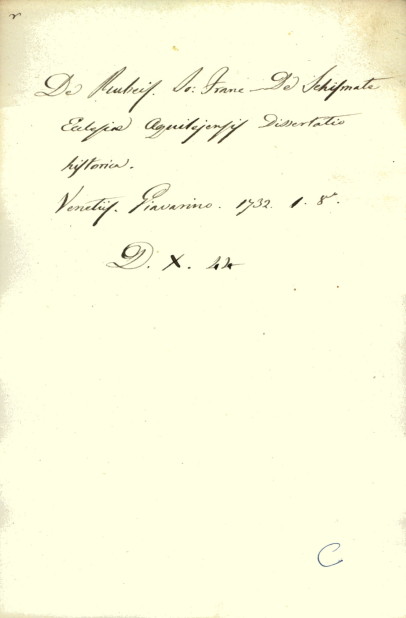 r
De Rubeis. Io: Franc — De Schismate
Ecclesiae Aquilejensis Dissertatio
historica.
Venetiis. Piavarino. 1732. 1. 8°.
D. X. 44
C